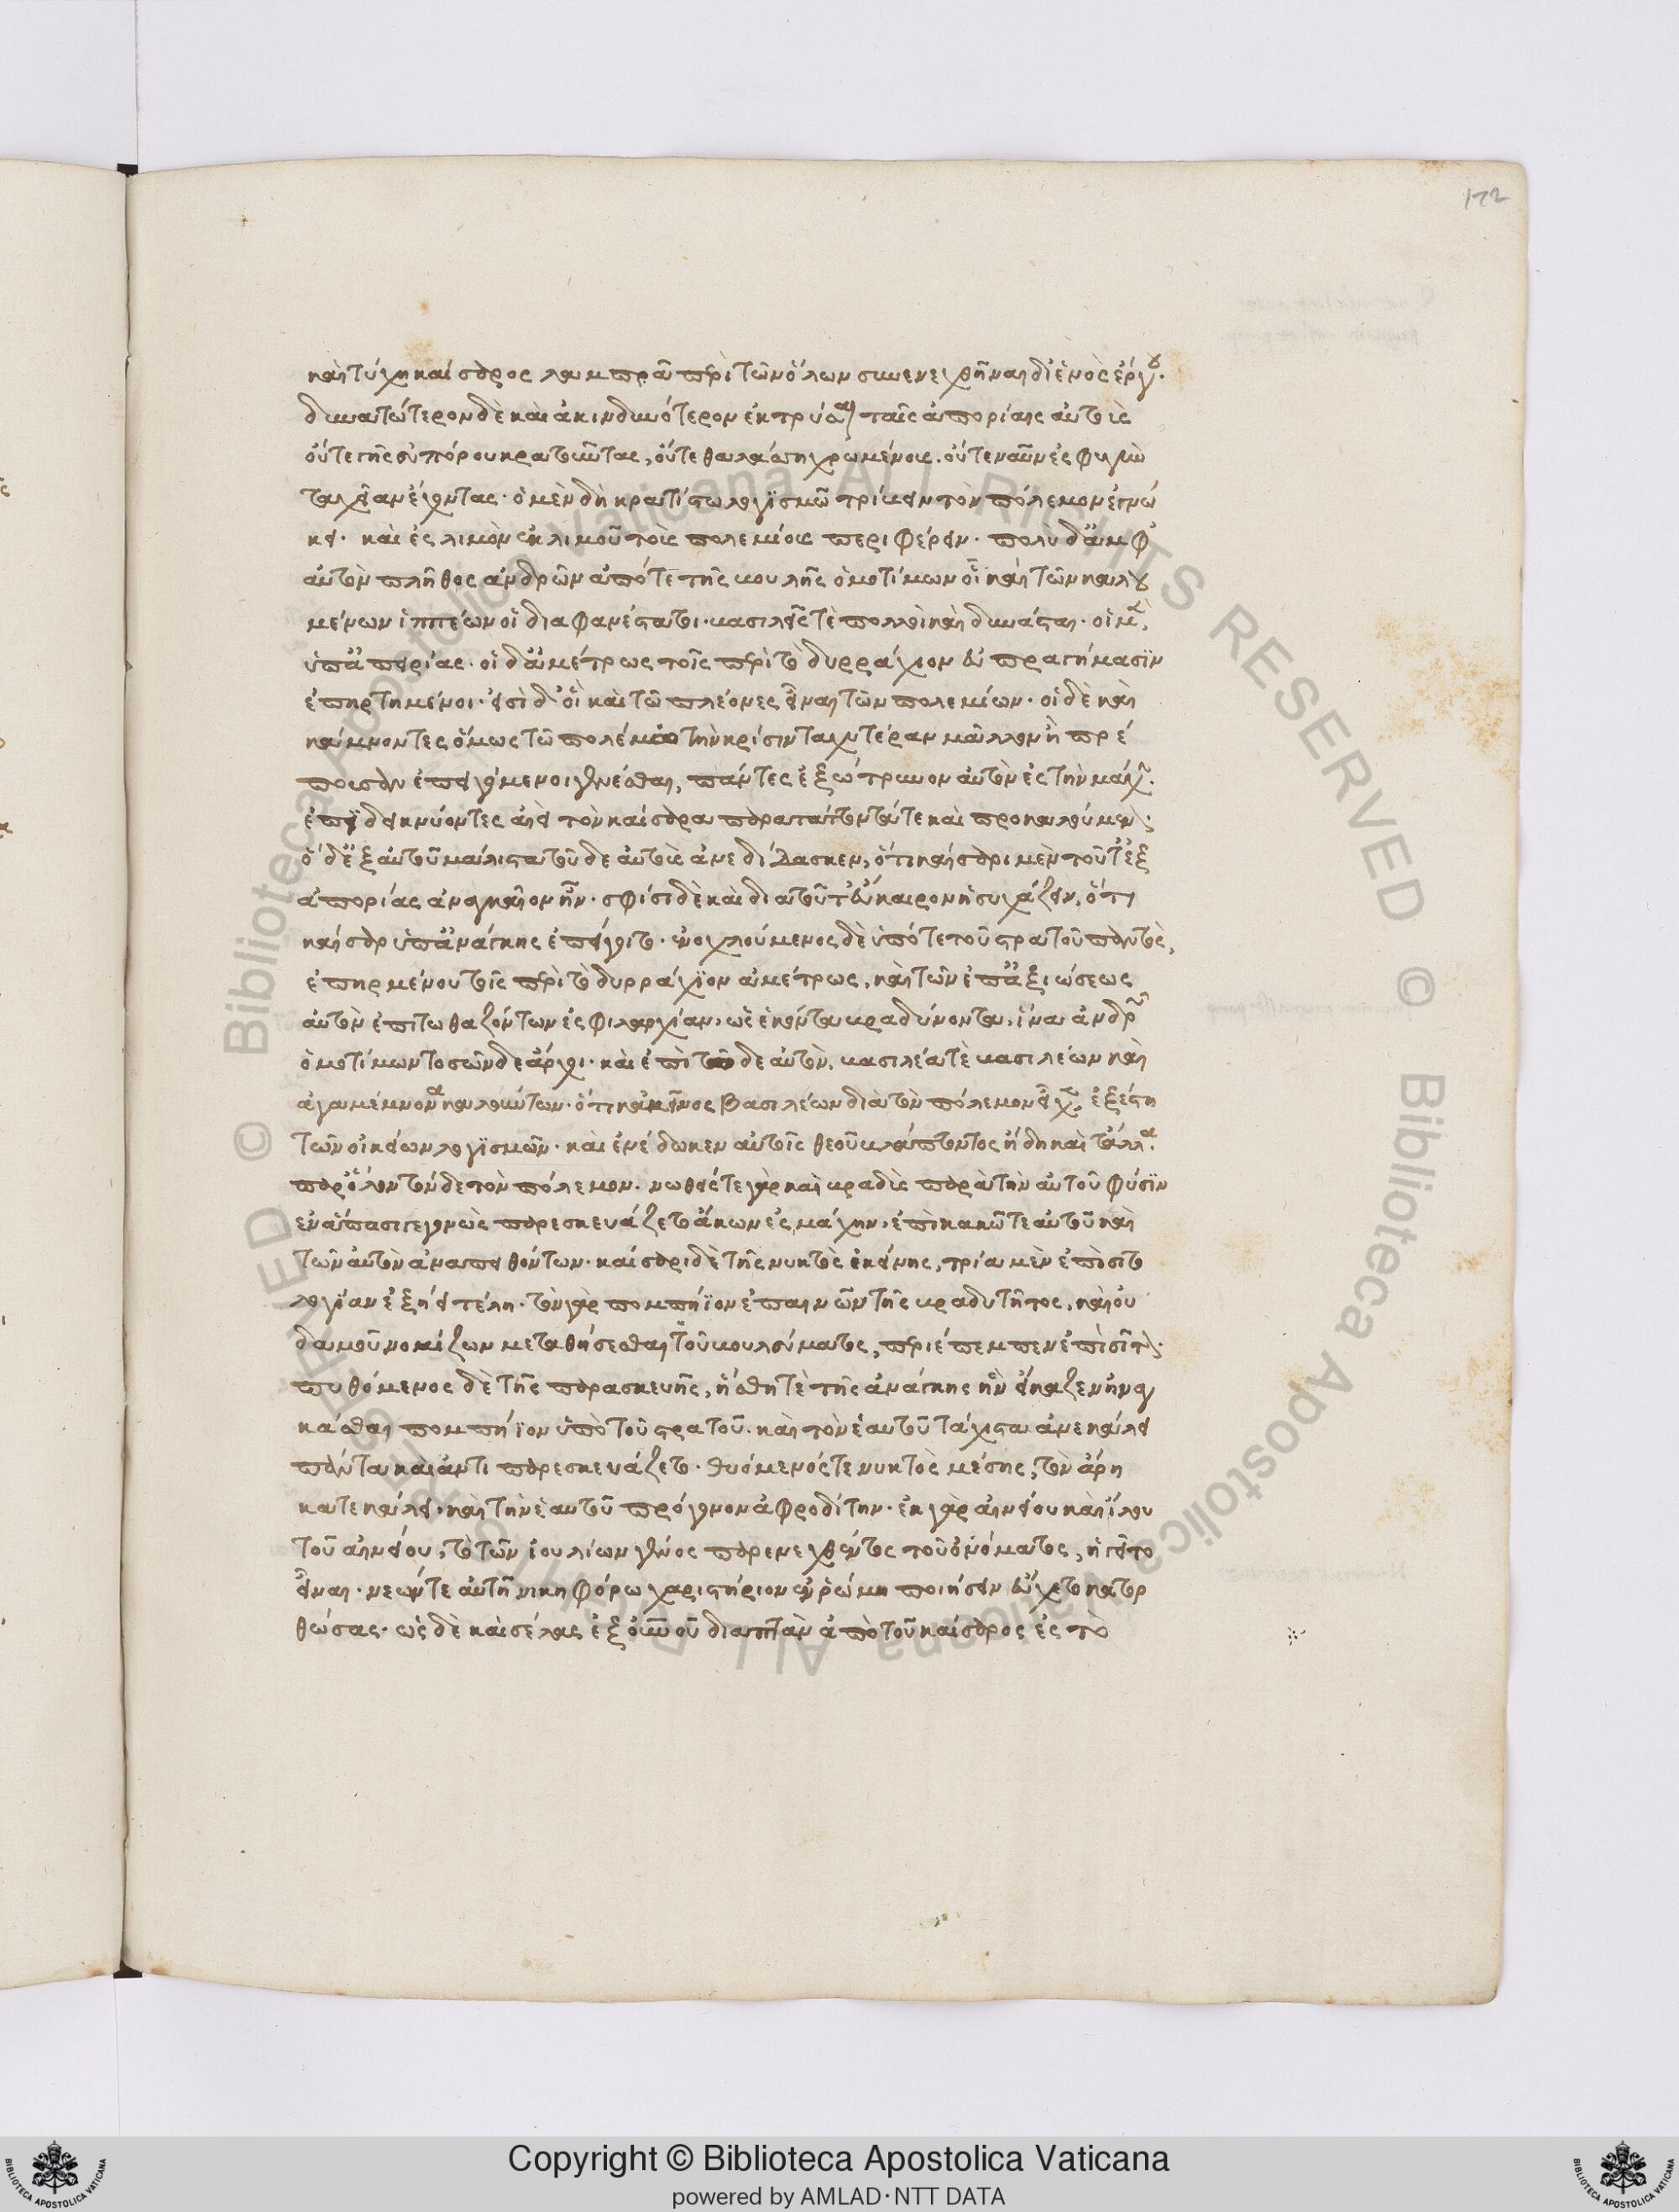 172
καὶ τύχη καίσαρος λαμπρᾶ περὶ τῶν ὅλων συνενεχθῆναι δι' ἑνὸς ἔργου·
δυνατώτερον δὲ καὶ ἀκινδυνότερον ἐκτρύσαι ταῖς ἀπορίαις αὐτοὺς
οὔτε γῆς εὐπόρου κρατοῦντας, οὔτε θαλάσσῃ χρωμένους. οὔτε ναῦς ἐς φυγὴν
ταχεῖαν ἔχοντας· ὁ μὲν δὴ κρατίστω λογϊσμῶ τρίβειν τὸν πόλεμον ἐγνώ
κει· καὶ ἐς λιμὸν ἐκ λιμοῦ τοῖς πολεμίοις περιφέρειν· πολὺ δ' ἀμφ'
αὐτὸν πλῆθος ἀνδρῶν ἀπό τε τῆς βουλῆς ὁμοτίμων οἷ καὶ τῶν καλου
μένων ἱππέων οἱ διαφανέστατοι· βασιλεῖς τὲ πολλοὶ καὶ δυνάσται· οἱ μὲν
ὑπ' ἀπειρίας· οἱ δ' ἀμέτρως τοῖς περὶ τὸ δυρράχιον εὐπραγήμασϊν
ἐπηρτημένοι· εἰσὶ δ' οἳ καὶ τῶ πλέονες εἶναι τῶν πολεμίων· οἱ δὲ καὶ
κάμνοντες ὅμως τῶ πολέμω τὴν κρίσιν ταχυτέραν μᾶλλον ἢ πρέ
πουσαν ἐπειγόμενοι γενέσθαι, πάντες ἐξώτρυνον αὐτὸν ἐς τὴν μάχην.
ἐπϊδεικνύοντες ἀεὶ τὸν καίσαρα παρατάττοντά τε καὶ προκαλούμενον·
ὁ δ' ἐξ αὐτοῦ μάλιστα τοῦδε αὐτοὺς ἀνεδίδασκεν, ὅτι καίσαρι μὲν τοῦτ' ἐξ
ἀπορίας ἀναγκαῖον ἦν· σφίσι δὲ καὶ διὰ τοῦτ' εὔκαιρον ἡσυχάζειν, ὅτι
καίσαρ ὑπ' ἀνάγκης ἐπείγοιτο· ἐνοχλούμενος δὲ ὑπό τε τοῦ στρατοῦ παντὸς,
ἐπηρμένου τοῖς περὶ τὸ δυρράχϊον ἀμέτρως, καὶ τῶν ἐπ' ἀξιώσεως
αὐτὸν ἐπιτωθαζόντων ἐς φιλαρχίαν, ὡς ἑκόντα βραδύνοντα, ἵνα ἀνδρῶν
ὁμοτίμων τοσῶνδε ἄρχοι· καὶ ἐπὶ τῶδε αὐτὸν, βασιλέα τὲ βασιλέων καὶ
ἀγαμέμνονα καλούντων· ὅτι κἀκεῖνος βασιλέων διὰ τὸν πόλεμον εἶχεν, ἐξέστη
τῶν οἰκείων λογϊσμῶν· καὶ ἐνέδωκεν αὐτοῖς θεοῦ βλάπτοντος ἤδη καὶ τἄλλα
παρ' ὅλον τόνδε τὸν πόλεμον· νωθείς τε γὰρ καὶ βραδὺς παρὰ τὴν αὐτοῦ φύσϊν
ἐν ἅπασι γεγονὼς παρεσκευάζετο ἄκων ἐς μάχην, ἐπὶ κακῶ τε αὐτοῦ καὶ
τῶν αὐτὸν ἀναπειθόντων· καίσαρι δὲ τῆς νυκτὸς ἐκείνης, τρία μὲν ἐπὶ σιτο
λογίαν ἐξῄει τέλη· τὸν γὰρ πομπήϊον ἐπαινῶν τῆς βραδυτῆτος, καὶ οὐ
δαμοῦ νομίζων μεταθήσεσθαι τοῦ βουλεύματος, περιέπεμπεν ἐπὶ σῖτον·
πυθόμενος δὲ τῆς παρασκευῆς, ἥσθη τὲ τῆς ἀνάγκης ἣν εἴκαζεν ἠναγ
κάσθαι πομπήϊον ὑπὸ τοῦ στρατοῦ· καὶ τὸν ἑαυτοῦ τάχιστα ἀνεκάλει
πάντα καὶ ἀντιπαρεσκευάζετο· θυόμενός τε νυκτὸς μέσης, τὸν ἄρη
κατεκάλει· καὶ τὴν ἑαυτοῦ πρόγονον ἀφροδίτην· ἐκ γὰρ αἰνείου καὶ ἴλου
τοῦ αἰνείου, τὸ τῶν ἰουλίων γένος παρενεχθέντος τοῦ ὀνόματος, ἡγεῖτο
εἶναι· νεών τε αὐτῆ νικηφόρω χαριστήριον ἐν ῥώμη ποιήσειν εὔχετο κατορ
θώσας· ὡς δὲ καὶ σέλας ἐξ οὐνοῦ διαπτὰν ἀπὸ τοῦ καίσαρος ἐς τὸ
© Biblioteca Apostolica Vaticana ALL RIGHTS RESERVED
Copyright © Biblioteca Apostolica Vaticana
powered by AMLAD·NTT DATA